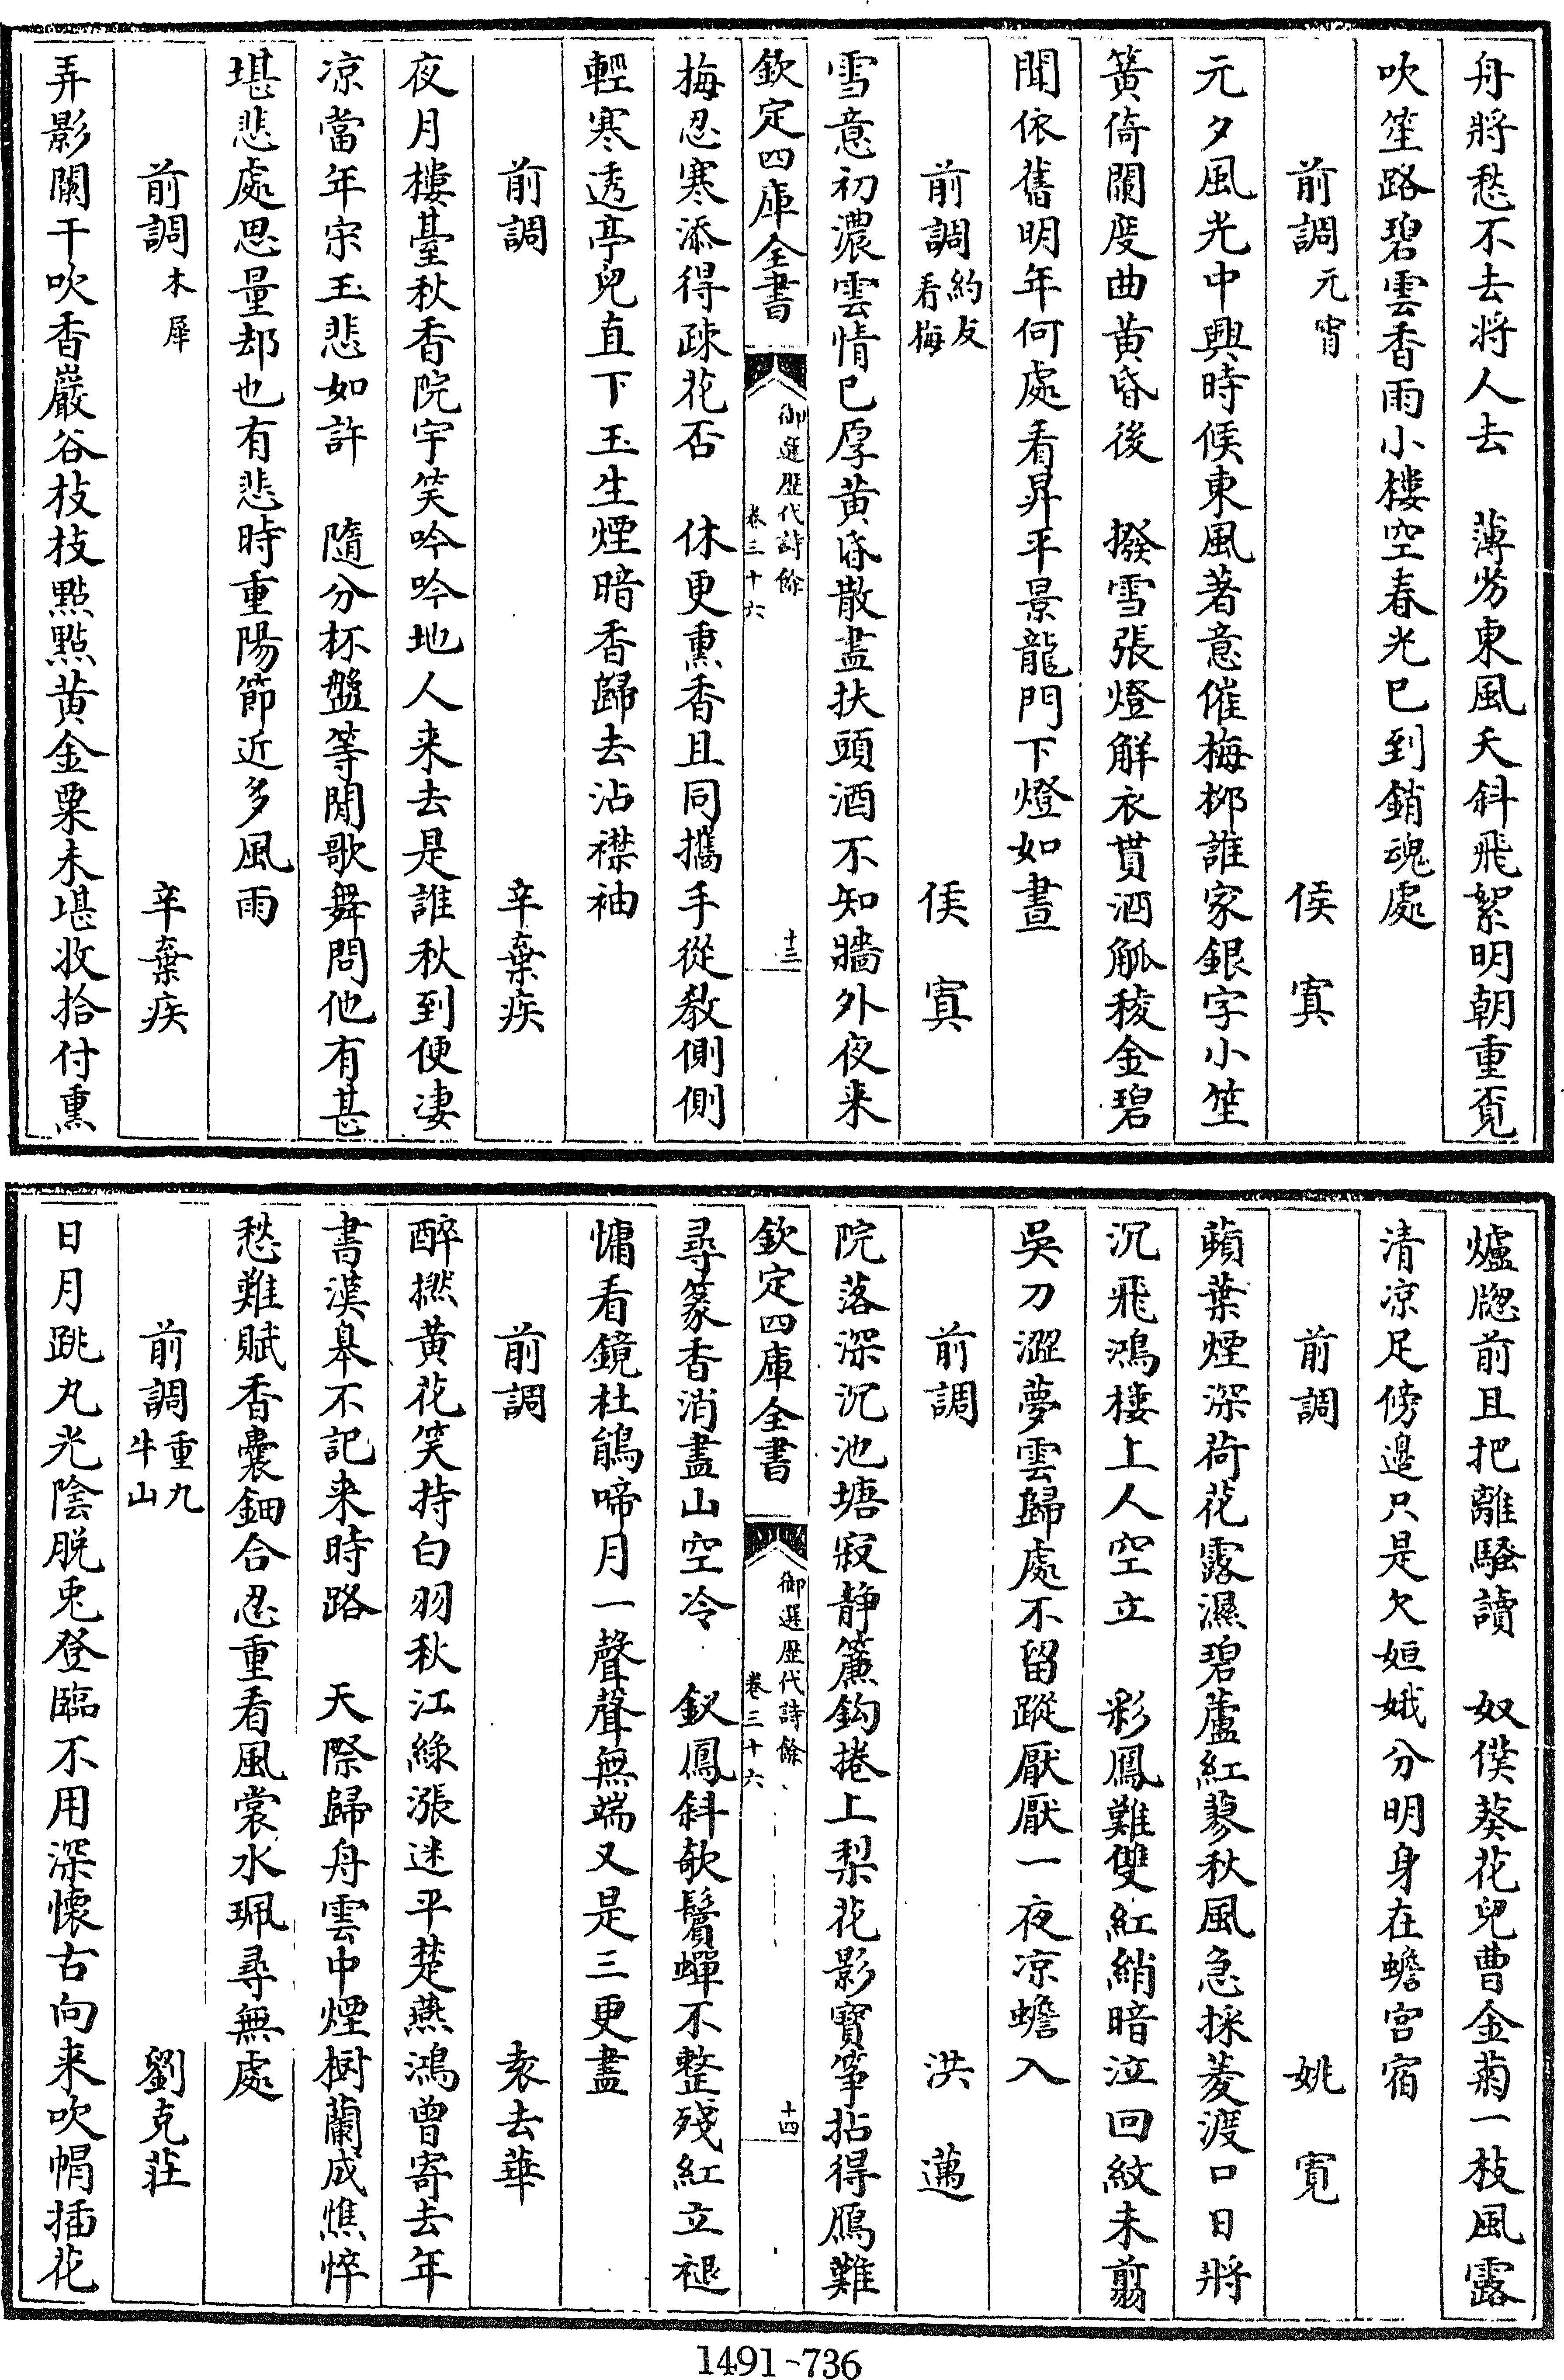 舟將愁不去将人去　薄劣東風夭斜飛絮明朝重覓
吹笙路碧雲香雨小樓空春光已到銷魂處
前調元宵　侯寘
元夕風光中興時候東風著意催梅栁誰家銀字小笙
簧倚闌度曲黄昏後　撥雪張燈解衣貰酒觚稜金碧
聞依舊明年何處看昇平景龍門下燈如晝
前調約友看梅　侯寘
雪意初濃雲情已厚黄昏散盡扶頭酒不知牆外夜来
欽定四庫全書　御選歴代詩餘卷三十六　十三
梅忍寒添得疎花否　休更熏香且同攜手從教側側
輕寒透亭兒直下玉生煙暗香歸去沾襟袖
前調　辛棄疾
夜月樓臺秋香院宇笑吟吟地人来去是誰秋到便凄
凉當年宋玉悲如許　隨分杯盤等閒歌舞問他有甚
堪悲處思量却也有悲時重陽節近多風雨
前調木犀　辛棄疾
弄影闌干吹香巖谷枝枝點點黄金粟未堪收拾付熏
爐牎前且把離騷讀　奴僕葵花兒曹金菊一枝風露
清凉足傍邊只是欠姮娥分明身在蟾宫宿
前調　姚寛
蘋葉煙深荷花露濕碧蘆紅蓼秋風急採菱渡口日將
沉飛鴻樓上人空立　彩鳳難雙紅綃暗泣回紋未翦
吳刀澀夢雲歸處不留蹤厭厭一夜凉蟾入
前調　洪邁
院落深沉池塘寂静簾鈎捲上梨花影寶筝拈得鴈難
欽定四庫全書　御選歴代詩餘卷三十六　十四
尋篆香消盡山空冷　釵鳳斜欹鬢蟬不整殘紅立褪
慵看鏡杜鵑啼月一聲聲無端又是三更盡
前調　袁去華
醉撚黄花笑持白羽秋江緑漲迷平楚燕鴻曾寄去年
書漢皋不記来時路　天際歸舟雲中煙樹蘭成憔悴
愁難賦香囊鈿合忍重看風裳水珮尋無處
前調重九牛山　劉克莊
日月跳丸光陰脱兎登臨不用深懐古向来吹帽插花
1491-736